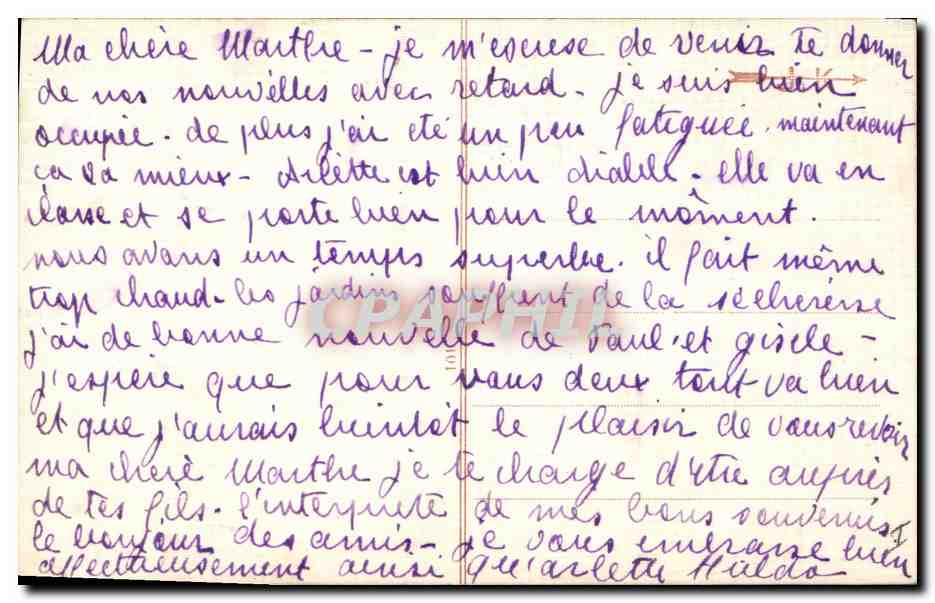 Ma chère Marthe - je m'escuse de venir te donner
de nos nouvelles avec retard - je suis bien
occupée. de plus j'ai été un peu fatiguée. maintenant
ca va mieux - Arlette est bien diable - elle va en
classe et se porte bien pour le môment.
nous avons un temps superbe. il fait même
trop chaud - les jardins souffrent de la sécheresse
j'ai de bonne nouvelle de Paul et gisele -
j'espère que pour vous deux tout va bien
et que j'aurais bientôt le plaisir de vous revoir
ma chère Marthe je te charge d'être auprès
de tes fils - l'interprète de mes bons souvenirs
le bonjour des amis - je vous embrasse bien
affectueusement ainsi qu'arlette Hulda
CPAPHIL
101